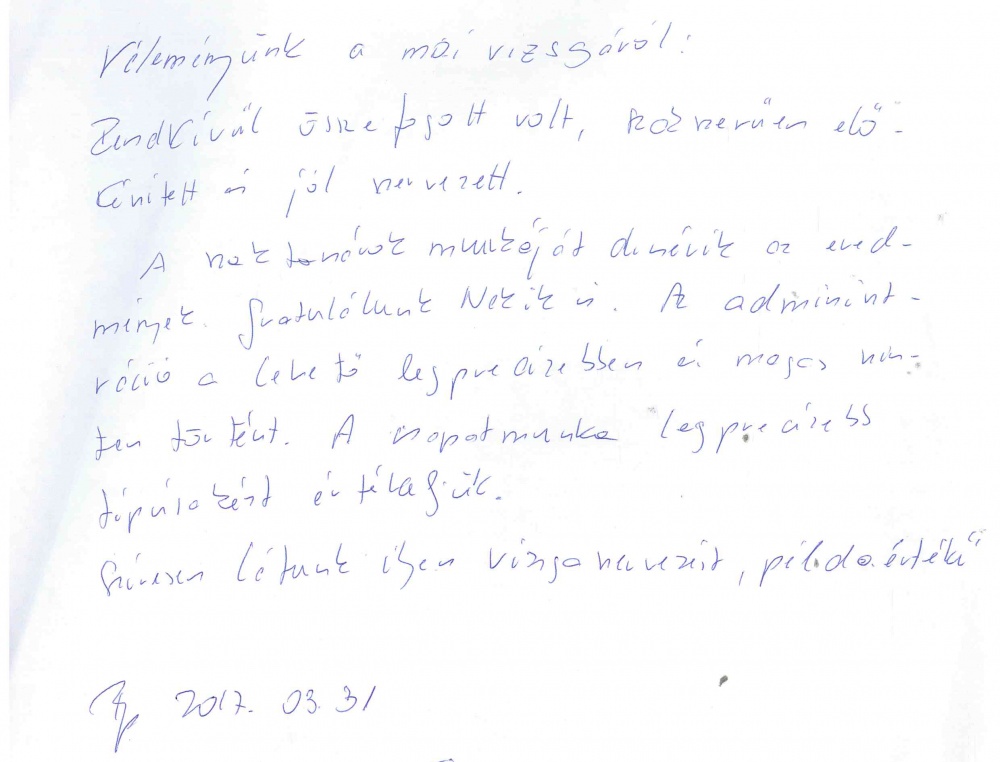 Véleményünk a mai vizsgáról:
Rendkívül összefogott volt, közszerűen elő-
készített és jól szervezett.
A szaktanárok munkáját dicsérik az ered-
mények. Gratulálunk Nekik is. A adminiszt-
ráció a lehető legprecízebben és magas szin-
ten történt. A csapatmunka legprecízebb
értékeljük.
Szívesen látunk ilyen vizsgaszervezést, példaértékű
Bp 2017. 03. 31